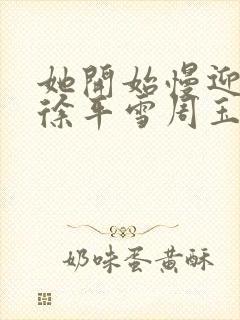 她開始慢迎
徐平雪周玉
奶味蛋黃酥